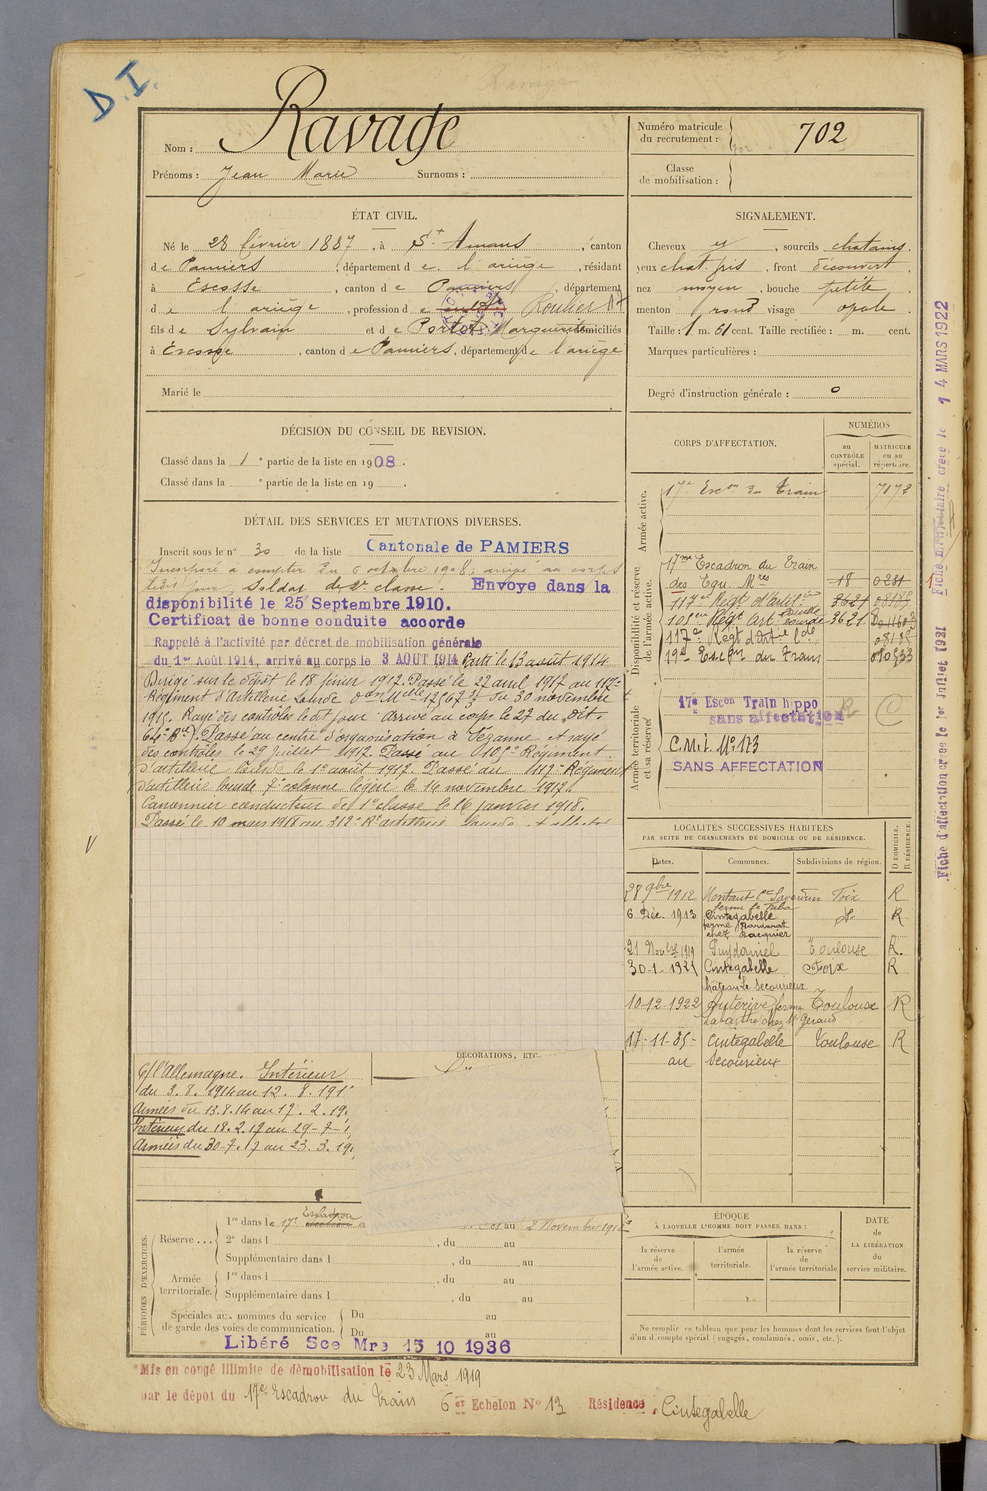 D. I.
Nom : Ravage
Prénoms : Jean Marie Surnoms :
Numéro matricule du recrutement : 702
Classe de mobilisation :
ÉTAT CIVIL.
Né le 28 février 1887, à St Amans, canton
de Pamiers, département de l'ariège, résidant
à Escosse, canton de Pamiers, département
de l'ariège, profession de Roulier
fils de Sylvain et de Portet Marguerite domiciliés
à Escosse, canton de Pamiers, département de l'ariège
Marié le
SIGNALEMENT.
Cheveux et, sourcils chatains
yeux chat. gris, front découvert
nez moyen, bouche petite
menton rond visage opale
Taille : 1 m. 61 cent. Taille rectifiée : m. cent.
Marques particulières :
Degré d'instruction générale : 0
DÉCISION DU CONSEIL DE REVISION.
Classé dans la 1e partie de la liste en 1908.
Classé dans la e partie de la liste en 19
DÉTAIL DES SERVICES ET MUTATIONS DIVERSES.
Inscrit sous le n° 30 de la liste Cantonale de PAMIERS
Incorporé à compter du 6 octobre 1908, arrivé au corps
ledit jour, Soldat de 2e classe. Envoyé dans la
disponibilité le 25 Septembre 1910.
Certificat de bonne conduite accordé
Rappelé à l'activité par décret de mobilisation générale
du 1er Août 1914, arrivé au corps le 3 AOUT 1914 Parti le 13 août 1914
Dirigé sur le dépôt le 18 février 1917. Passé le 27 avril 1917 au 117e
Régiment d'artillerie Lourde du 30 novembre
1915. Rayé des contrôles le dit jour. Arrivé au corps le 27 du dit.
Passé au centre d'organisation à Sézanne et rayé
des contrôles le 29 Juillet 1917. Passé au 107e Régiment
d'artillerie lourde le 1er août 1917. Passé au 117e Régiment
d'artillerie lourde 7e colonne légère le 14 novembre 1917.
Canonnier conducteur de 1e classe le 16 janvier 1918.
Passé le 10 mars 1918 au 312e Rt artillerie Lourde
CORPS D'AFFECTATION.
NUMÉROS
au CONTRÔLE spécial.
MATRICULE ou au répertoire.
Armée active.
17e Escon du Train 7172
Disponibilité et réserve de l'armée active.
17me Escadron du Train
des Equ. Mres 18 0231
117e Régt d'artie 3621
107eme Régt Art. Lourde 3621
117e Régt d'Artie Lde
19e Escon du Train 010533
Armée territoriale et sa réserve
17e Escon Train hippo
sans affectation
C.M.I. No 173
SANS AFFECTATION
Fiche d'affectation créée le 1er Juillet 1921
créée le 14 MARS 1922
LOCALITÉS SUCCESSIVES HABITÉES
PAR SUITE DE CHANGEMENTS DE DOMICILE OU DE RÉSIDENCE.
Dates. Communes. Subdivisions de région. D DOMICILE. R RÉSIDENCE.
28 9bre 1912 Montaut Foix R
6 Déc. 1913 Cintegabelle do R
21 Novbre 1919 Puydaniel Toulouse R.
30-1-1921 Cintegabelle Foix R
chateau le Secourieux
10-12-1922 Auterive ferme Toulouse R
Labarthe chez Mr Geraud
17-11-35 Cintegabelle Toulouse R
au Secourieux
DÉCORATIONS, ETC.
C/ l'Allemagne. Intérieur
du 3. 8. 1914 au 12. 8. 191
Armées du 13.8.14 au 17. 2. 19
Intérieur du 18.2.17 au 29-7-1
Armées du 30-7.17 au 23. 3. 19
PÉRIODES D'EXERCICES.
Réserve ... 1re dans le 17e Escadron au 2 Novembre 191
2e dans l , du au
Supplémentaire dans l , du au
Armée territoriale. 1re dans l , du au
Supplémentaire dans l , du au
Spéciales aux hommes du service de garde des voies de communication. Du au
Du au
Libéré Sce Mre 15 10 1936
ÉPOQUE
À LAQUELLE L'HOMME DOIT PASSER DANS :
la réserve de l'armée active.
l'armée territoriale.
la réserve de l'armée territoriale
DATE DE LA LIBÉRATION du service militaire.
Ne remplir ce tableau que pour les hommes dont les services font l'objet
d'un décompte spécial (engagés, condamnés, omis, etc.).
Mis en congé illimité de démobilisation le 23 Mars 1919
par le dépôt du 17e Escadron du Train 6e Echelon No 13 Résidence Cintegabelle